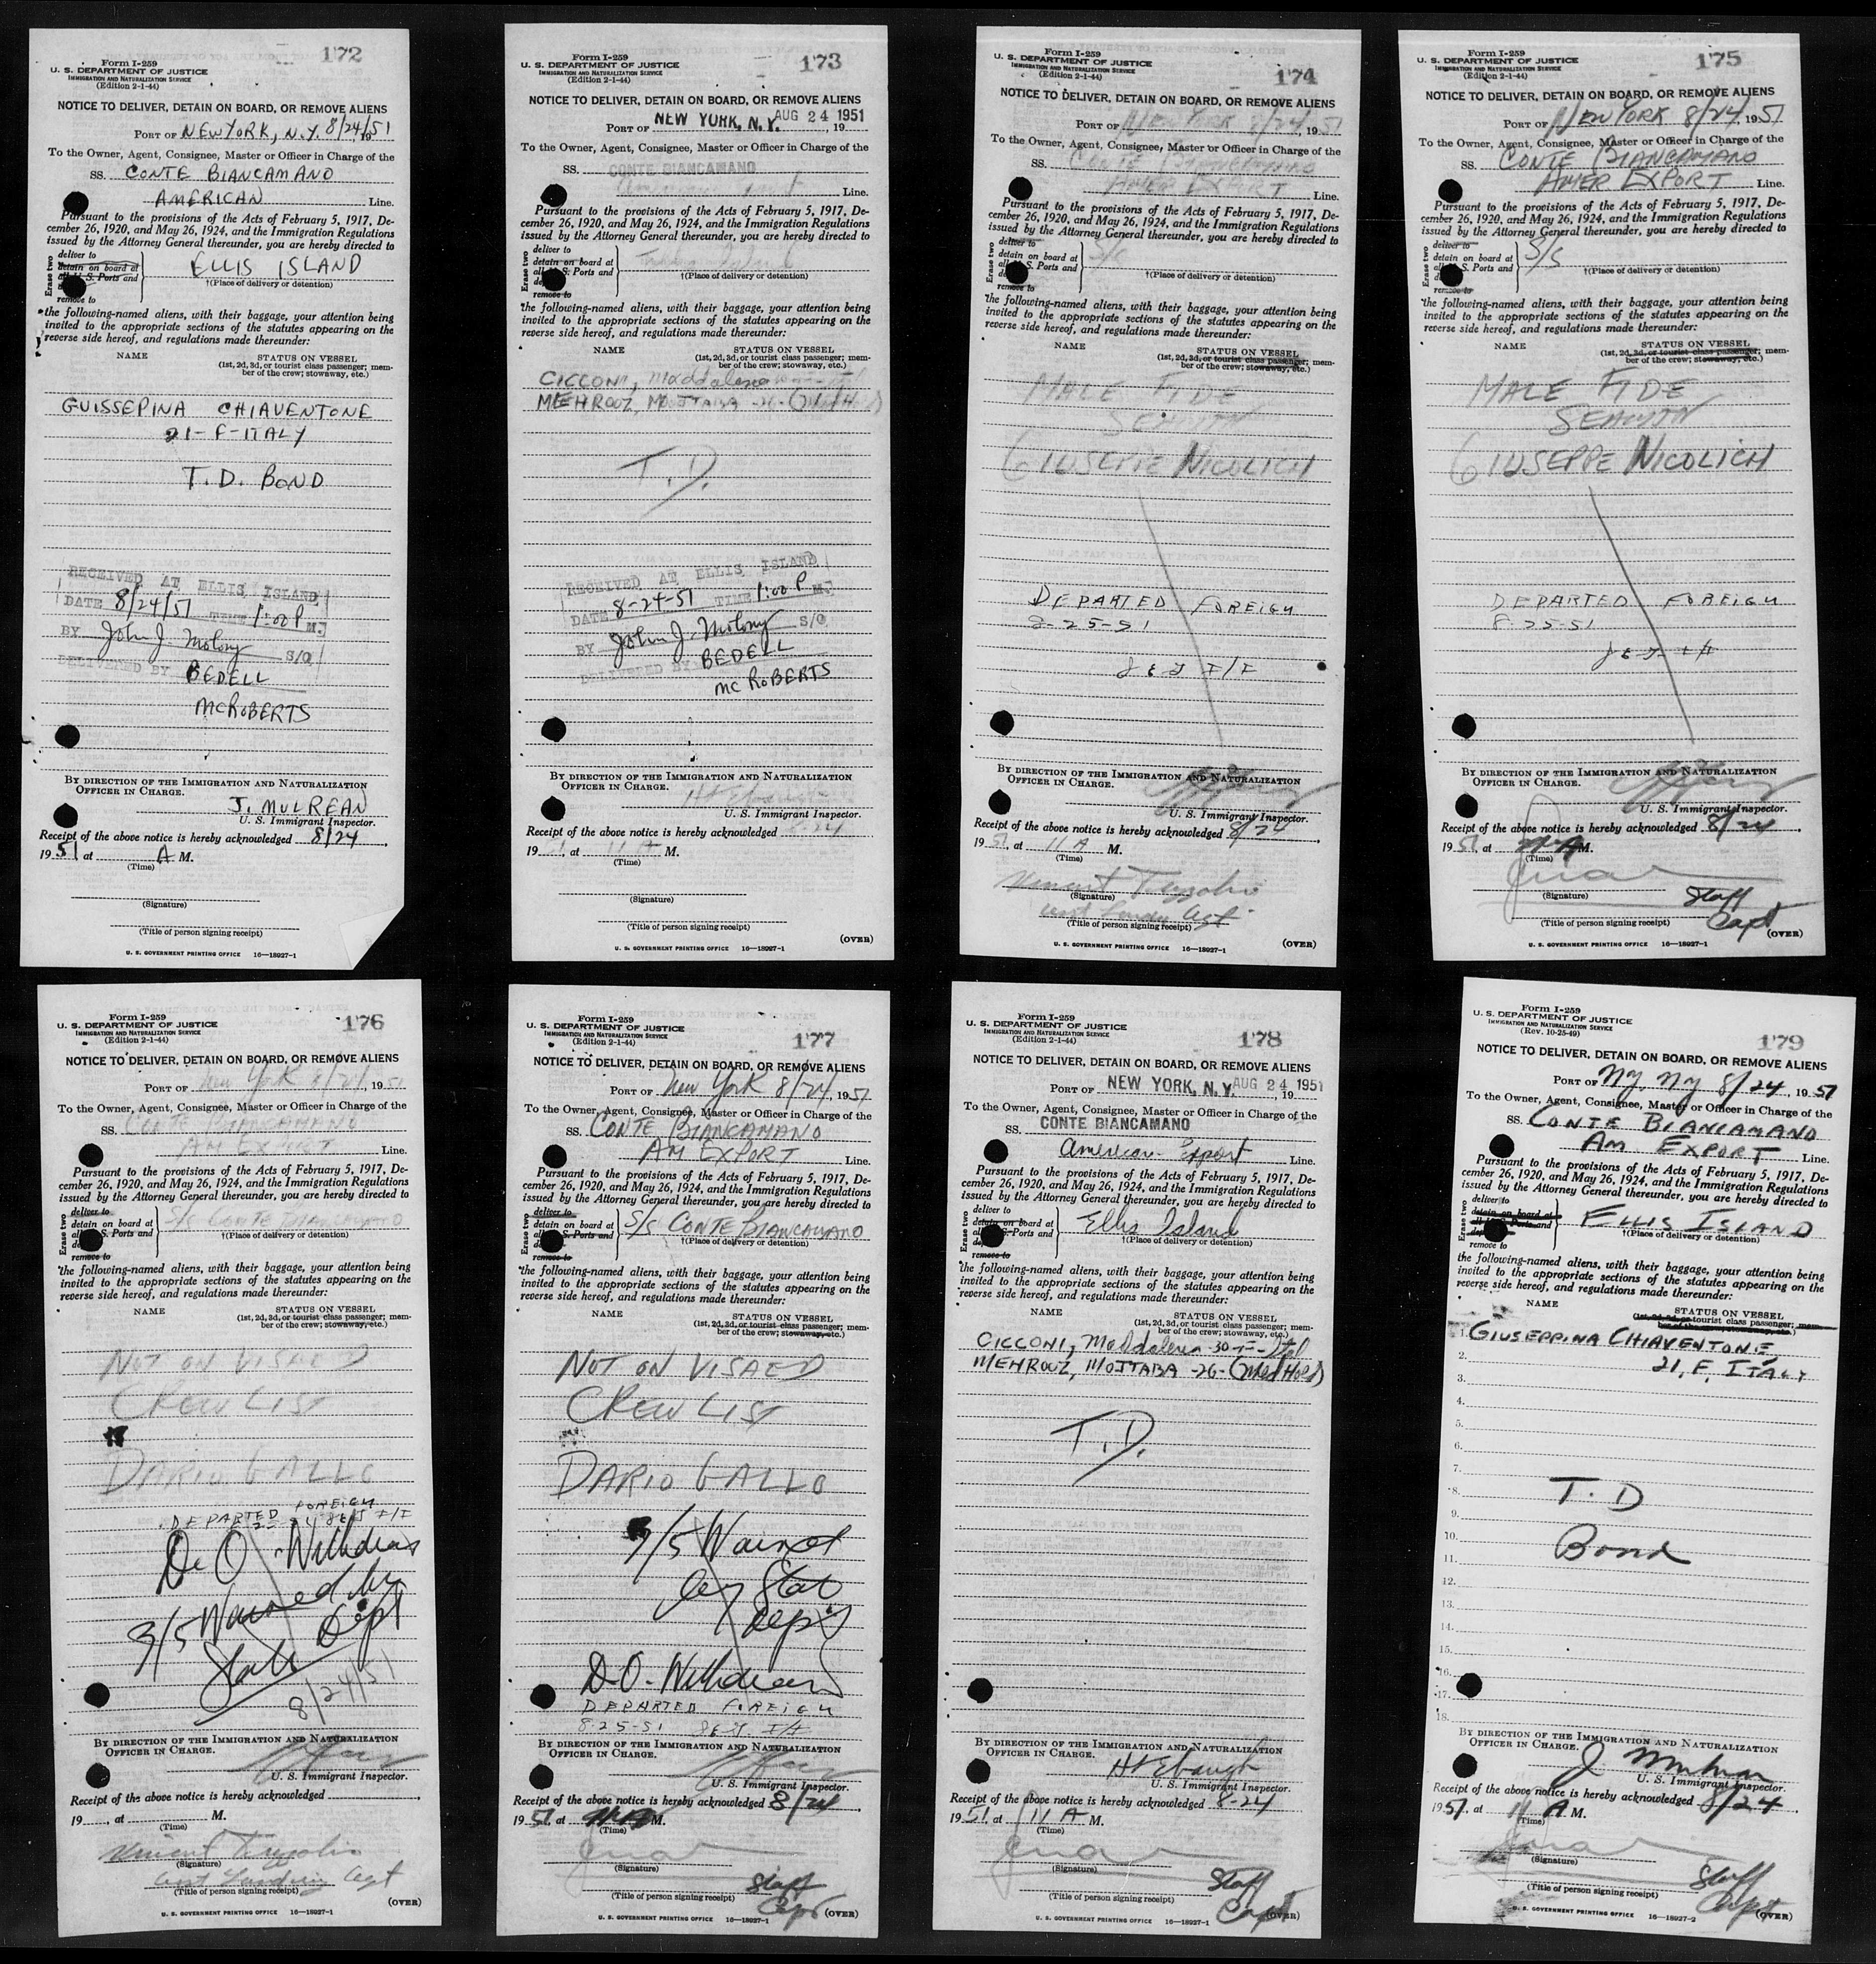 172
Form I-259
U. S. DEPARTMENT OF JUSTICE
IMMIGRATION AND NATURALIZATION SERVICE
(Edition 2-1-44)
NOTICE TO DELIVER, DETAIN ON BOARD, OR REMOVE ALIENS
PORT OF NEW YORK, N.Y. 8/24/51
19
To the Owner, Agent, Consignee, Master or Officer in Charge of the
SS. CONTE BIANCAMANO
AMERICAN Line.
Pursuant to the provisions of the Acts of February 5, 1917, De-
cember 26, 1920, and May 26, 1924, and the Immigration Regulations
issued by the Attorney General thereunder, you are hereby directed to
Erase two
deliver to
detain on board at
all U. S. Ports and
remove to
ELLIS ISLAND
†(Place of delivery or detention)
the following-named aliens, with their baggage, your attention being
invited to the appropriate sections of the statutes appearing on the
reverse side hereof, and regulations made thereunder:
NAME STATUS ON VESSEL
(1st, 2d, 3d, or tourist class passenger; mem-
ber of the crew; stowaway, etc.)
GUISSEPINA CHIAVENTONE
21-F-ITALY
T.D. BOND
RECEIVED AT ELLIS ISLAND
DATE 8/24/51 TIME 1:00 P M.
BY John J. Molony S/O
DELIVERED BY BEDELL
MCROBERTS
BY DIRECTION OF THE IMMIGRATION AND NATURALIZATION
OFFICER IN CHARGE.
J. MULREAN
U. S. Immigrant Inspector.
Receipt of the above notice is hereby acknowledged 8/24,
1951 at A M.
(Time)
(Signature)
(Title of person signing receipt)
U. S. GOVERNMENT PRINTING OFFICE 16—18927-1
173
Form I-259
U. S. DEPARTMENT OF JUSTICE
IMMIGRATION AND NATURALIZATION SERVICE
(Edition 2-1-44)
NOTICE TO DELIVER, DETAIN ON BOARD, OR REMOVE ALIENS
PORT OF NEW YORK, N.Y. AUG 24 1951
, 19
To the Owner, Agent, Consignee, Master or Officer in Charge of the
SS. CONTE BIANCAMANO
Line.
Pursuant to the provisions of the Acts of February 5, 1917, De-
cember 26, 1920, and May 26, 1924, and the Immigration Regulations
issued by the Attorney General thereunder, you are hereby directed to
Erase two
deliver to
detain on board at
S. Ports and
remove to
Island
†(Place of delivery or detention)
the following-named aliens, with their baggage, your attention being
invited to the appropriate sections of the statutes appearing on the
reverse side hereof, and regulations made thereunder:
NAME STATUS ON VESSEL
(1st, 2d, 3d, or tourist class passenger; mem-
ber of the crew; stowaway, etc.)
CICCONI, Maddalena
MEHROUZ, MOJTABA -26-
T.D.
RECEIVED AT ELLIS ISLAND
DATE 8-24-51 TIME 1:00 P M.
BY John J. Molony S/O
DELIVERED BY BEDELL
MC ROBERTS
BY DIRECTION OF THE IMMIGRATION AND NATURALIZATION
OFFICER IN CHARGE.
H Ebaugh
U. S. Immigrant Inspector.
Receipt of the above notice is hereby acknowledged 8-24
19 , at 11 A M.
(Time)
(Signature)
(Title of person signing receipt)
(OVER)
U. S. GOVERNMENT PRINTING OFFICE 16—18927-1
174
Form I-259
U. S. DEPARTMENT OF JUSTICE
IMMIGRATION AND NATURALIZATION SERVICE
(Edition 2-1-44)
NOTICE TO DELIVER, DETAIN ON BOARD, OR REMOVE ALIENS
PORT OF NEW YORK 8/24, 1951
To the Owner, Agent, Consignee, Master or Officer in Charge of the
SS. CONTE BIANCAMANO
AMER EXPORT Line.
Pursuant to the provisions of the Acts of February 5, 1917, De-
cember 26, 1920, and May 26, 1924, and the Immigration Regulations
issued by the Attorney General thereunder, you are hereby directed to
Erase two
deliver to
detain on board at
S. Ports and
remove to
S/S
†(Place of delivery or detention)
the following-named aliens, with their baggage, your attention being
invited to the appropriate sections of the statutes appearing on the
reverse side hereof, and regulations made thereunder:
NAME STATUS ON VESSEL
(1st, 2d, 3d, or tourist class passenger; mem-
ber of the crew; stowaway, etc.)
MALE FIDE
SEAMAN
GIUSEPPE NICOLICH
DEPARTED FOREIGN
8-25-51
J & J I/I
BY DIRECTION OF THE IMMIGRATION AND NATURALIZATION
OFFICER IN CHARGE.
U. S. Immigrant Inspector.
Receipt of the above notice is hereby acknowledged 8/24,
1951, at 11 A M.
(Time)
Vincent
(Signature)
Asst Landing Agt
(Title of person signing receipt)
(OVER)
U. S. GOVERNMENT PRINTING OFFICE 16—18927-1
175
Form I-259
U. S. DEPARTMENT OF JUSTICE
IMMIGRATION AND NATURALIZATION SERVICE
(Edition 2-1-44)
NOTICE TO DELIVER, DETAIN ON BOARD, OR REMOVE ALIENS
PORT OF NEW YORK 8/24, 1951
To the Owner, Agent, Consignee, Master or Officer in Charge of the
SS. CONTE BIANCAMANO
AMER EXPORT Line.
Pursuant to the provisions of the Acts of February 5, 1917, De-
cember 26, 1920, and May 26, 1924, and the Immigration Regulations
issued by the Attorney General thereunder, you are hereby directed to
Erase two
deliver to
detain on board at
S. Ports and
remove to
S/S
†(Place of delivery or detention)
the following-named aliens, with their baggage, your attention being
invited to the appropriate sections of the statutes appearing on the
reverse side hereof, and regulations made thereunder:
NAME STATUS ON VESSEL
(1st, 2d, 3d, or tourist class passenger; mem-
ber of the crew; stowaway, etc.)
MALE FIDE
SEAMAN
GIUSEPPE NICOLICH
DEPARTED FOREIGN
8-25-51
J & J I/I
BY DIRECTION OF THE IMMIGRATION AND NATURALIZATION
OFFICER IN CHARGE.
U. S. Immigrant Inspector.
Receipt of the above notice is hereby acknowledged 8/24,
1951, at A M.
(Time)
(Signature)
Staff
Capt
(Title of person signing receipt)
(OVER)
U. S. GOVERNMENT PRINTING OFFICE 16—18927-1
176
Form I-259
U. S. DEPARTMENT OF JUSTICE
IMMIGRATION AND NATURALIZATION SERVICE
(Edition 2-1-44)
NOTICE TO DELIVER, DETAIN ON BOARD, OR REMOVE ALIENS
PORT OF New York 8/24, 1951
To the Owner, Agent, Consignee, Master or Officer in Charge of the
SS. CONTE BIANCAMANO
AM EXPORT Line.
Pursuant to the provisions of the Acts of February 5, 1917, De-
cember 26, 1920, and May 26, 1924, and the Immigration Regulations
issued by the Attorney General thereunder, you are hereby directed to
Erase two
deliver to
detain on board at
S. Ports and
remove to
S/S CONTE BIANCAMANO
†(Place of delivery or detention)
the following-named aliens, with their baggage, your attention being
invited to the appropriate sections of the statutes appearing on the
reverse side hereof, and regulations made thereunder:
NAME STATUS ON VESSEL
(1st, 2d, 3d, or tourist class passenger; mem-
ber of the crew; stowaway, etc.)
NOT ON VISAED
CREW LIST
DARIO GALLO
FOREIGN
DEPARTED
D.O. Withdrawn
9/5 Warned by
State Dept
8/24/51
BY DIRECTION OF THE IMMIGRATION AND NATURALIZATION
OFFICER IN CHARGE.
U. S. Immigrant Inspector.
Receipt of the above notice is hereby acknowledged
19 , at M.
(Time)
Vincent
(Signature)
Asst Landing Agt
(Title of person signing receipt)
(OVER)
U. S. GOVERNMENT PRINTING OFFICE 16—18927-1
177
Form I-259
U. S. DEPARTMENT OF JUSTICE
IMMIGRATION AND NATURALIZATION SERVICE
(Edition 2-1-44)
NOTICE TO DELIVER, DETAIN ON BOARD, OR REMOVE ALIENS
PORT OF New York 8/24, 1951
To the Owner, Agent, Consignee, Master or Officer in Charge of the
SS. CONTE BIANCAMANO
AM EXPORT Line.
Pursuant to the provisions of the Acts of February 5, 1917, De-
cember 26, 1920, and May 26, 1924, and the Immigration Regulations
issued by the Attorney General thereunder, you are hereby directed to
Erase two
deliver to
detain on board at
S. Ports and
remove to
S/S CONTE BIANCAMANO
†(Place of delivery or detention)
the following-named aliens, with their baggage, your attention being
invited to the appropriate sections of the statutes appearing on the
reverse side hereof, and regulations made thereunder:
NAME STATUS ON VESSEL
(1st, 2d, 3d, or tourist class passenger; mem-
ber of the crew; stowaway, etc.)
NOT ON VISAED
CREW LIST
DARIO GALLO
9/5 Warned
by Stat
Dept
D.O. Withdrawn
DEPARTED FOREIGN
8-25-51 J & J. I/I
BY DIRECTION OF THE IMMIGRATION AND NATURALIZATION
OFFICER IN CHARGE.
U. S. Immigrant Inspector.
Receipt of the above notice is hereby acknowledged 8/24,
1951, at 11 A M.
(Time)
(Signature)
Staff
Capt
(Title of person signing receipt)
(OVER)
U. S. GOVERNMENT PRINTING OFFICE 16—18927-1
178
Form I-259
U. S. DEPARTMENT OF JUSTICE
IMMIGRATION AND NATURALIZATION SERVICE
(Edition 2-1-44)
NOTICE TO DELIVER, DETAIN ON BOARD, OR REMOVE ALIENS
PORT OF NEW YORK, N.Y. AUG 24 1951
, 19
To the Owner, Agent, Consignee, Master or Officer in Charge of the
SS. CONTE BIANCAMANO
American Export Line.
Pursuant to the provisions of the Acts of February 5, 1917, De-
cember 26, 1920, and May 26, 1924, and the Immigration Regulations
issued by the Attorney General thereunder, you are hereby directed to
Erase two
deliver to
detain on board at
S. Ports and
remove to
Ellis Island
†(Place of delivery or detention)
the following-named aliens, with their baggage, your attention being
invited to the appropriate sections of the statutes appearing on the
reverse side hereof, and regulations made thereunder:
NAME STATUS ON VESSEL
(1st, 2d, 3d, or tourist class passenger; mem-
ber of the crew; stowaway, etc.)
CICCONI, Maddalena -30-F-Ital
MEHROUZ, MOJTABA -26- (Med Hold)
T.D.
BY DIRECTION OF THE IMMIGRATION AND NATURALIZATION
OFFICER IN CHARGE.
H Ebaugh
U. S. Immigrant Inspector.
Receipt of the above notice is hereby acknowledged 8-24
1951, at 11 A M.
(Time)
(Signature)
Staff
Capt
(Title of person signing receipt)
(OVER)
U. S. GOVERNMENT PRINTING OFFICE 16—18927-1
179
Form I-259
U. S. DEPARTMENT OF JUSTICE
IMMIGRATION AND NATURALIZATION SERVICE
(Rev. 10-25-49)
NOTICE TO DELIVER, DETAIN ON BOARD, OR REMOVE ALIENS
PORT OF NY, NY 8/24, 1951
To the Owner, Agent, Consignee, Master or Officer in Charge of the
SS. CONTE BIANCAMANO
AM EXPORT Line.
Pursuant to the provisions of the Acts of February 5, 1917, De-
cember 26, 1920, and May 26, 1924, and the Immigration Regulations
issued by the Attorney General thereunder, you are hereby directed to
Erase two
deliver to
detain on board at
S. Ports and
remove to
ELLIS ISLAND
†(Place of delivery or detention)
the following-named aliens, with their baggage, your attention being
invited to the appropriate sections of the statutes appearing on the
reverse side hereof, and regulations made thereunder:
NAME STATUS ON VESSEL
(1st, 2d, 3d, or tourist class passenger; mem-
ber of the crew, stowaway, etc.)
1. GIUSEPPINA CHIAVENTONE
2. 21, F, ITALY
3.
4.
5.
6.
7.
8. T.D
9.
10. Bond
11.
12.
13.
14.
15.
16.
17.
18.
BY DIRECTION OF THE IMMIGRATION AND NATURALIZATION
OFFICER IN CHARGE.
J Mulrean
U. S. Immigrant Inspector.
Receipt of the above notice is hereby acknowledged 8/24,
1951, at 11 A M.
(Time)
(Signature)
Staff
Capt
(Title of person signing receipt)
(OVER)
U. S. GOVERNMENT PRINTING OFFICE 16—18927-2